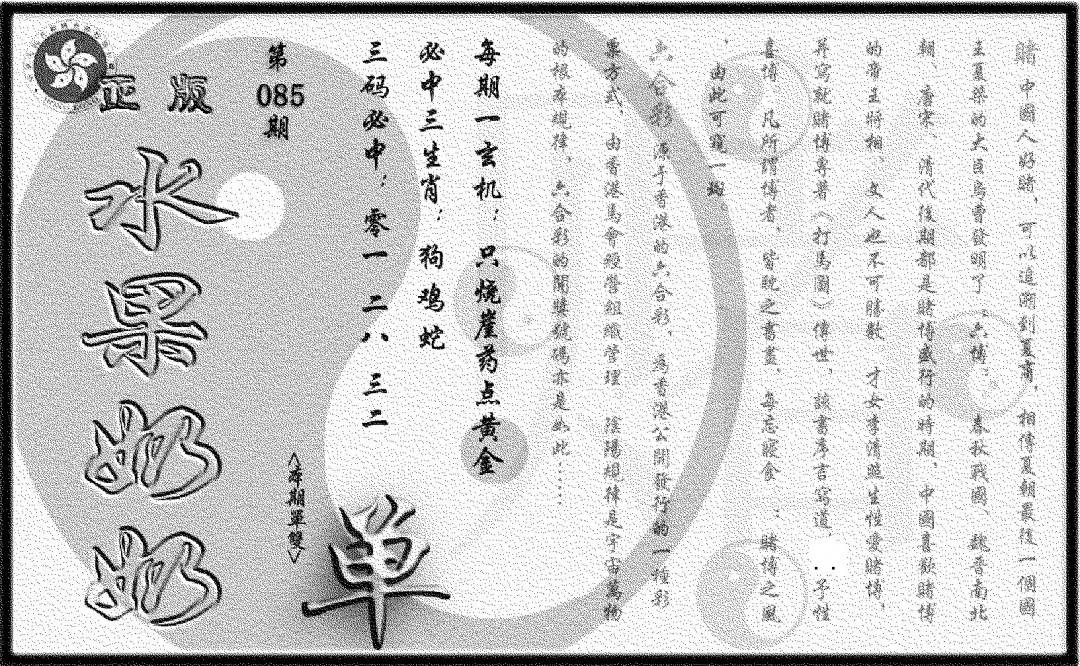 賭 中國人好賭，可以追溯到夏商，相傳夏朝最後一個國
王夏桀的大臣烏曹發明了“六博； 春秋戰國、魏晉南北
朝、唐宋、清代後期都是賭博盛行的時期，中國喜歡賭博
的帝王將相、文人也不可勝數 才女李清照生性愛賭博，
并寫就賭博專著《打馬圖》傳世，該書序言寫道，..予性
喜博，凡所謂博者，皆耽之書畫，每忘寢食 ；賭博之風
，由此可窺一斑。
六合彩 源于香港的六合彩，為香港公開發行的一種彩
票方式，由香港馬會經營組織管理 陰陽相揀是宇宙萬物
的根本規律，六合彩的開獎號碼亦是如此……
每期一玄机：只烧崖药点黄金
必中三生肖：狗鸡蛇
三码必中：零一 二八 三二
第085期
<本期單雙>
单
正版
水果奶奶